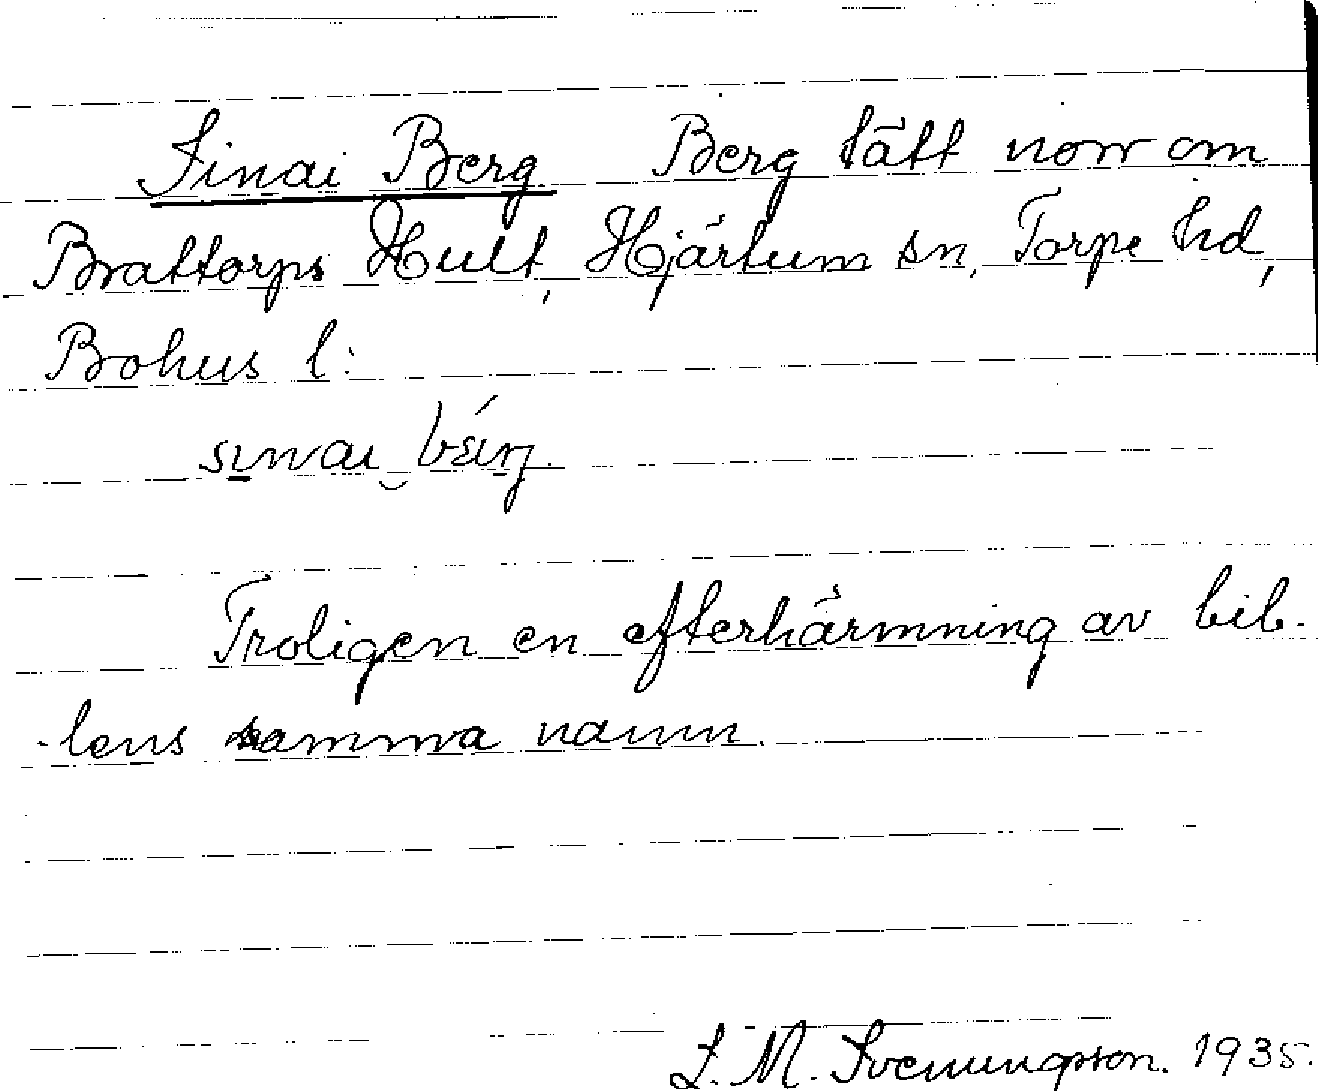 Sinai Berg Berg tätt norr om
Brattorps Hult, Hjärtum sn, Torpe hd,
Bohus l:
Troligen en efterhärmning av bib-
-lens samma namn.
S. M. Svenungsson. 1935.